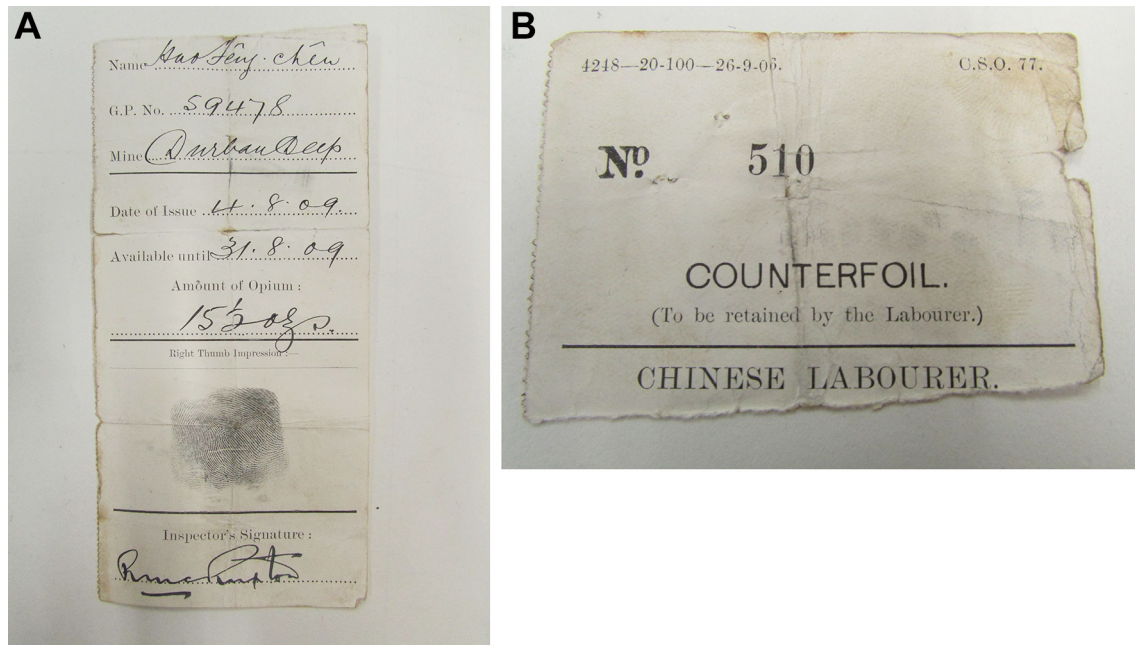 A
Name Hao Fêng-chên
G.P. No. 59478
Mine Durban Deep
Date of Issue 4. 8. 09.
Available until 31. 8. 09
Amount of Opium :
15½ ozs.
Right Thumb Impression :—
Inspector's Signature :
B
4248—20-100—26-9-06.
C.S.O. 77.
No. 510
COUNTERFOIL.
(To be retained by the Labourer.)
CHINESE LABOURER.